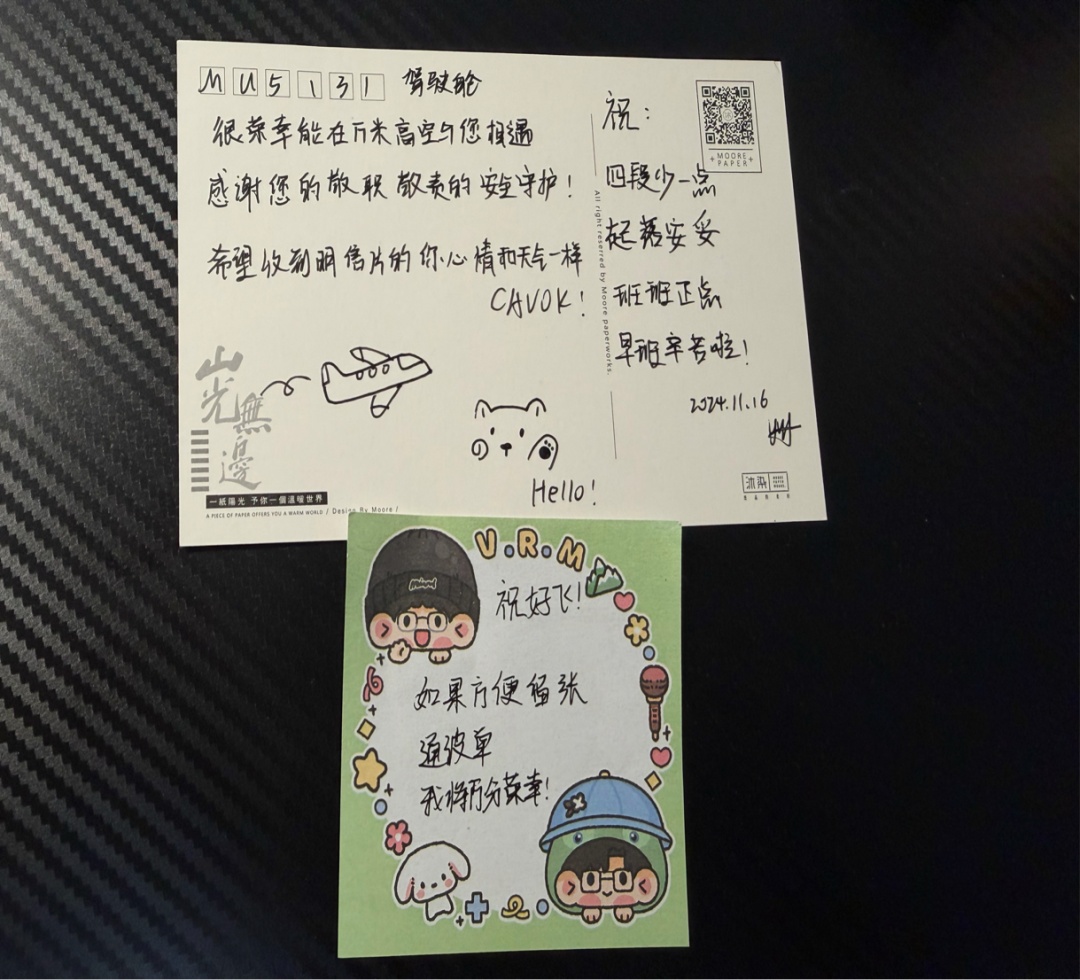 MU5131 驾驶舱
很荣幸能在万米高空与您相遇
感谢您的敬职敬责的安全守护！
希望收到明信片的你心情和天气一样
CAVOK！
祝：
四段少一点
起落安妥
班班正点
早班辛苦啦！
2024.11.16
MOORE
PAPER
All right reserred by Moore paperworks.
Hello！
山光無邊
一紙陽光 予你一個溫暖世界
A PIECE OF PAPER OFFERS YOU A WARM WORLD / Design By Moore /
V.R.M
祝好飞！
如果方便留张
通波单
我将万分荣幸！